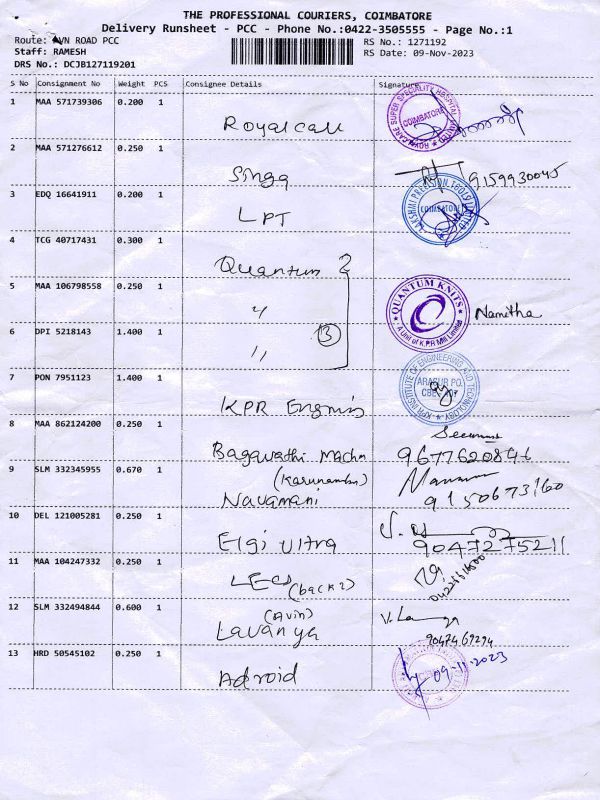 THE PROFESSIONAL COURIERS, COIMBATORE
Delivery Runsheet - PCC - Phone No.:0422-3505555 - Page No.:1
Route: AVN ROAD PCC
RS No.: 1271192
Staff: RAMESH
RS Date: 09-Nov-2023
DRS No.: DCJB127119201
S No Consignment No Weight PCS Consignee Details Signature
1 MAA 571739306 0.200 1
Royalcare
ROYAL CARE SUPER SPECIALITY HOSPITAL LIMITED COIMBATORE
2 MAA 571276612 0.250 1
Singa 9159930045
3 EDQ 16641911 0.200 1
LPT
LAKSHMI PRECISION TOOLS LIMITED COIMBATORE
4 TCG 40717431 0.300 1
Quantum
5 MAA 106798558 0.250 1
" QUANTUM KNITS A Unit of K.P.R Mill Limited Namitha
6 DPI 5218143 1.400 1
" 3
7 PON 7951123 1.400 1
KPR Engining
KPR INSTITUTE OF ENGINEERING AND TECHNOLOGY ARASUR PO.
8 MAA 862124200 0.250 1
Bagavathi Machn 9677620846
(Karunambu)
9 SLM 332345955 0.670 1
Navamani 9150673160
10 DEL 121005281 0.250 1
Elgi Ultra 9047275211
11 MAA 104247332 0.250 1
LECS (back2)
12 SLM 332494844 0.600 1
(Avin)
Lavanya
13 HRD 50545102 0.250 1
Adroid 09-11-2023